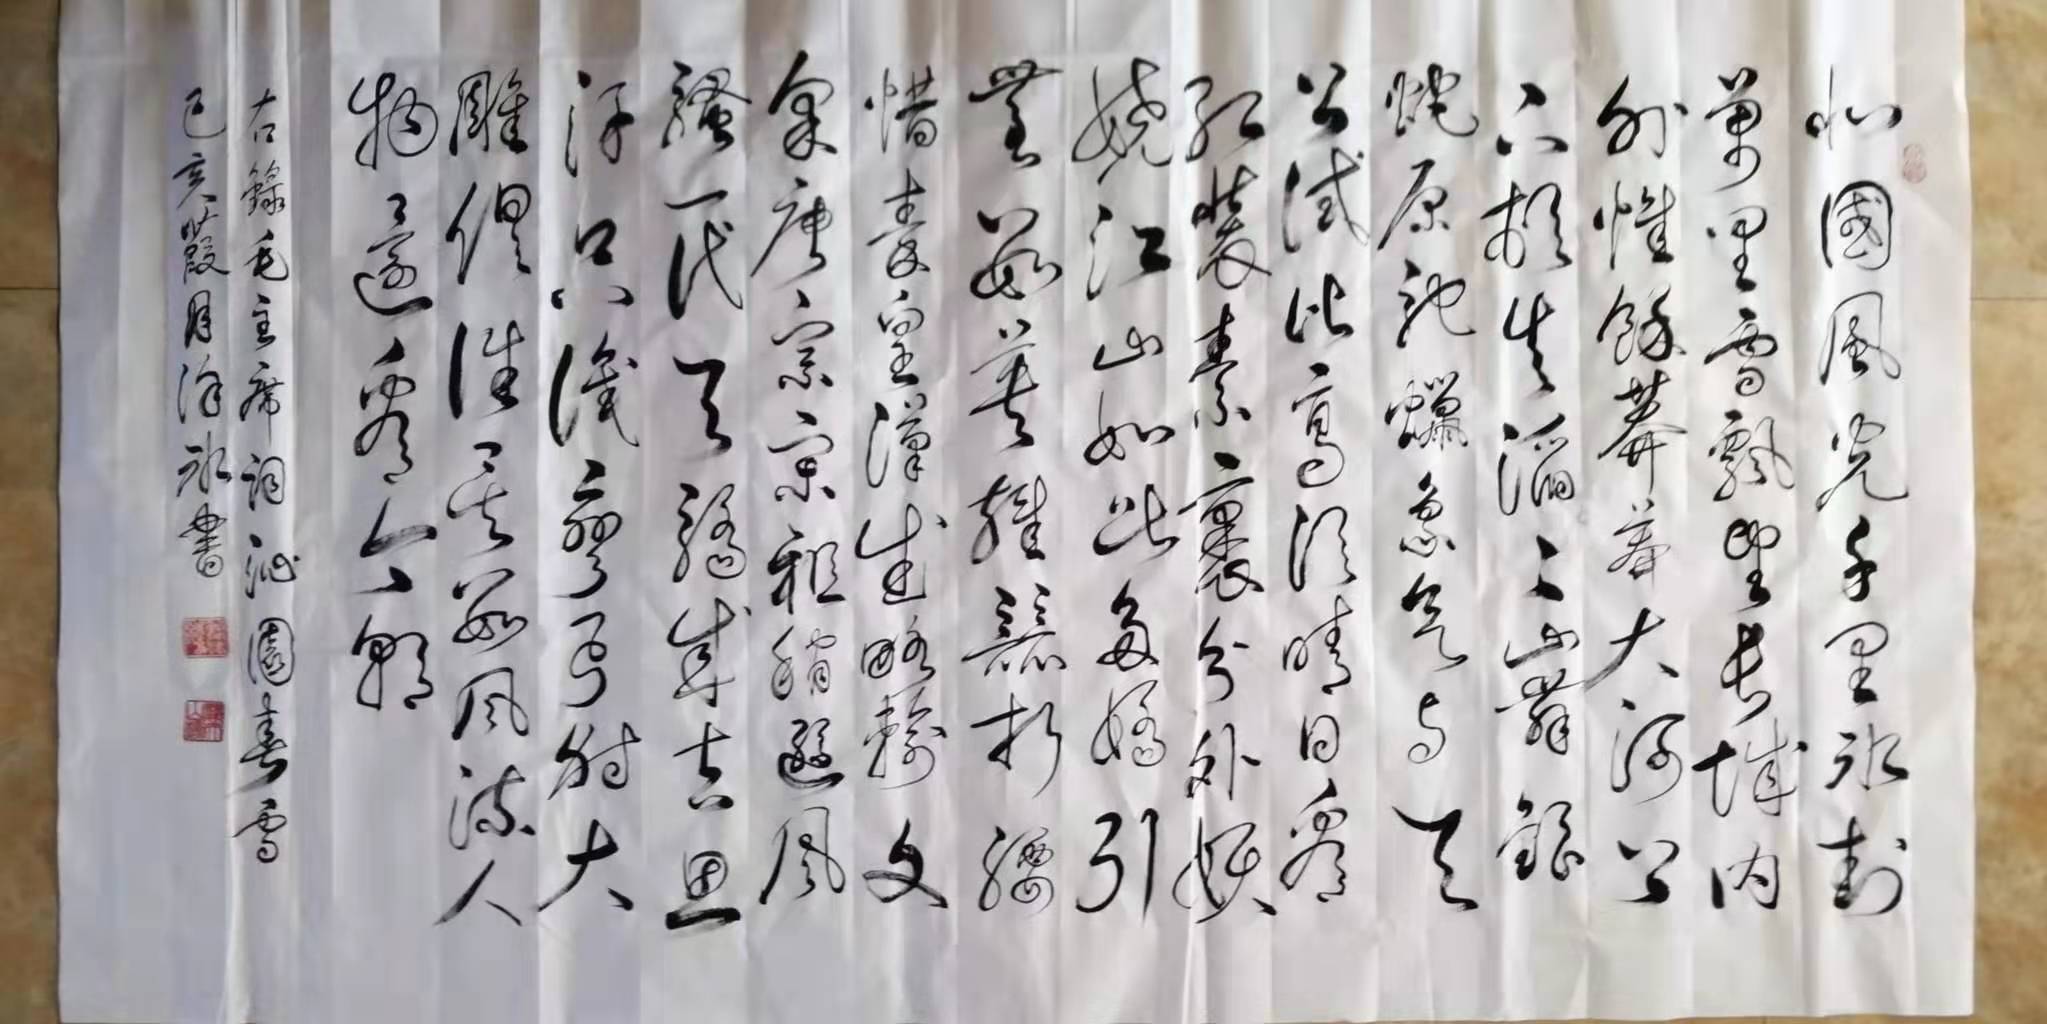 北國風光千里氷封
萬里雪飄望長城内
外惟餘莽莽大河上
下頓失滔〻山舞銀
蛇原馳蠟象欲与天
公試比高須晴日看
紅裝素裹分外妖
嬈江山如此多嬌引
無數英雄競折腰
惜秦皇漢武略輸文
采唐宗宋祖稍遜風
騷一代天驕成吉思
汗只識彎弓射大
雕俱往矣數風流人
物還看今朝
右錄毛主席詞沁園春雪
己亥葭月徐氷書